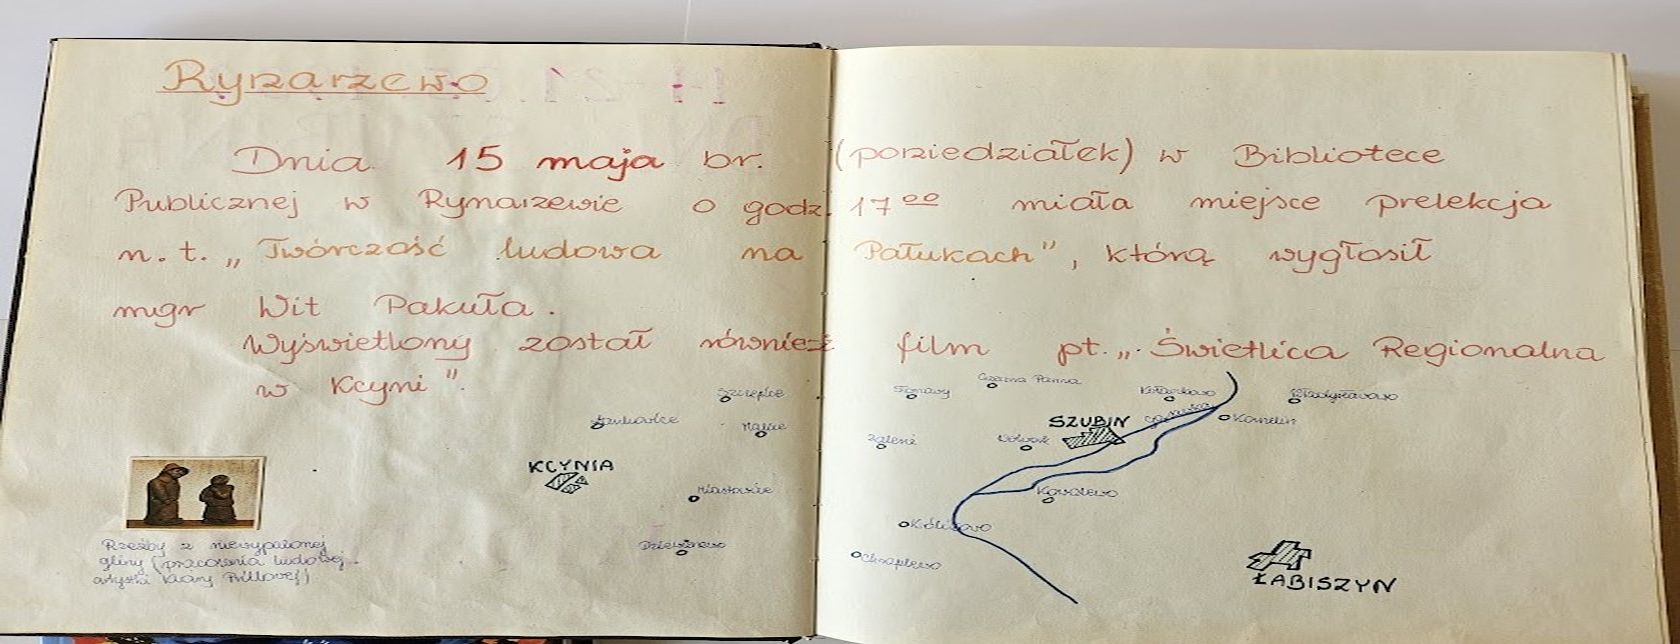 Rynarzewo
Dnia 15 maja br. (poniedziałek) w Bibliotece
Publicznej w Rynarzewie o godz. 17 00 miała miejsce prelekcja
n. t. „Twórczość ludowa na Pałukach", którą wygłosił
mgr Wit Pakuła.
Wyświetlony został również film pt. „Świetlica Regionalna
w Kcyni".
Czarna Panna
Szczepice
Kołaczkowo
Władysławowo
SZUBIN
Gąsawka
Zalesie
Wolwark
KCYNIA
Kowalewo
Królikowo
Chraplewo
ŁABISZYN
Rzeźby z niewypalonej
gliny (pracownia ludowej
artystki Klary Prillowej)